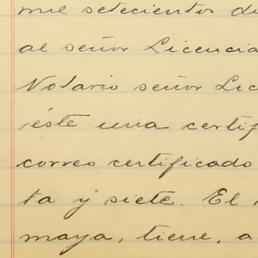 mil setecientos di
al señor Licencia
Notario señor Lic
éste una certif
correo certificado
ta y siete. El
maya, tiene, a